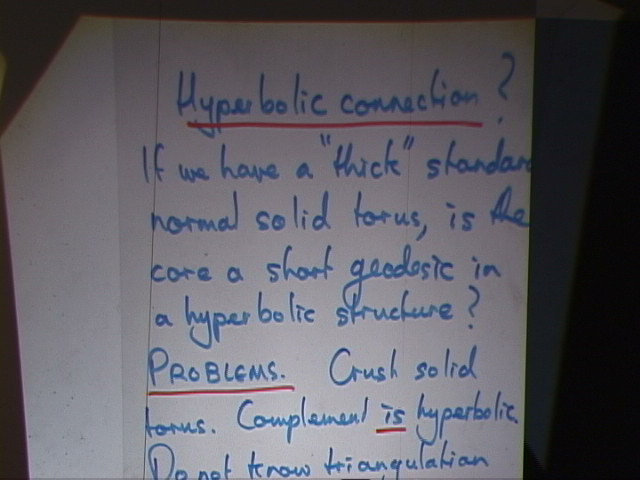 Hyperbolic connection?
If we have a "thick" standard
normal solid torus, is the
core a short geodesic in
a hyperbolic structure?
PROBLEMS. Crush solid
torus. Complement is hyperbolic.
Do not know triangulation